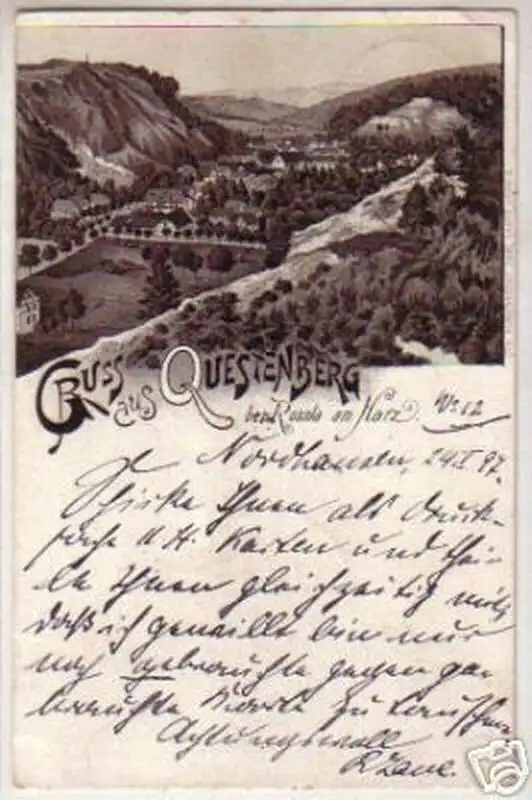 GRUSS aus QUESTENBERG
bei Rossla am Harz. No 12
Nordhausen, 24.I 97.
Schicke Ihnen als Druck-
sache u. H. Karten und thei-
le Ihnen gleichzeitig mit,
daß ich gewillt bin nur
noch gebrauchte gegen ge-
brauchte Karte zu tauschen
Achtungsvoll
R